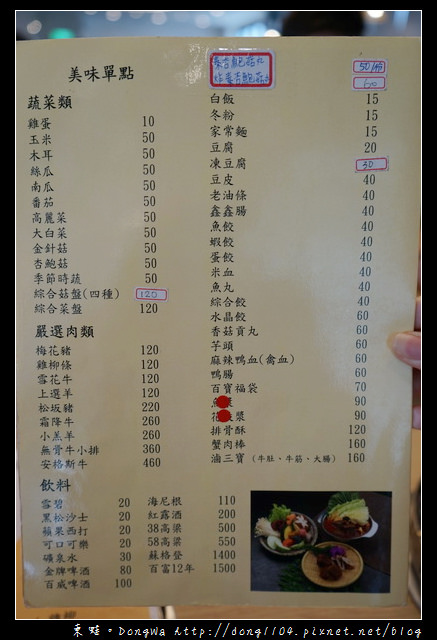 美味單點
蔬菜類
雞蛋 10
玉米 50
木耳 50
絲瓜 50
南瓜 50
番茄 50
高麗菜 50
大白菜 50
金針菇 50
杏鮑菇 50
季節時蔬 50
綜合菇盤(四種) 120
綜合菜盤 120
嚴選肉類
梅花豬 120
雞柳條 120
雪花牛 120
上選羊 120
松坂豬 220
霜降牛 260
小羔羊 260
無骨牛小排 360
安格斯牛 460
飲料
雪碧 20
黑松沙士 20
蘋果西打 20
可口可樂 20
礦泉水 30
金牌啤酒 80
百威啤酒 100
杏鮑菇丸 50/份
炸素杏鮑菇 60
白飯 15
冬粉 15
家常麵 15
豆腐 20
凍豆腐 30
豆皮 40
老油條 40
鑫鑫腸 40
魚餃 40
蝦餃 40
蛋餃 40
米血 40
魚丸 40
綜合餃 40
水晶餃 60
香菇貢丸 60
芋頭 60
麻辣鴨血(禽血) 60
鴨腸 60
百寶福袋 70
90
漿 90
排骨酥 120
蟹肉棒 160
滷三寶 (牛肚、牛筋、大腸) 160
海尼根 110
紅露酒 200
38高粱 500
58高粱 550
蘇格登 1400
百富12年 1500
東哇。DongWa http://dong1104.pixnet.net/blog